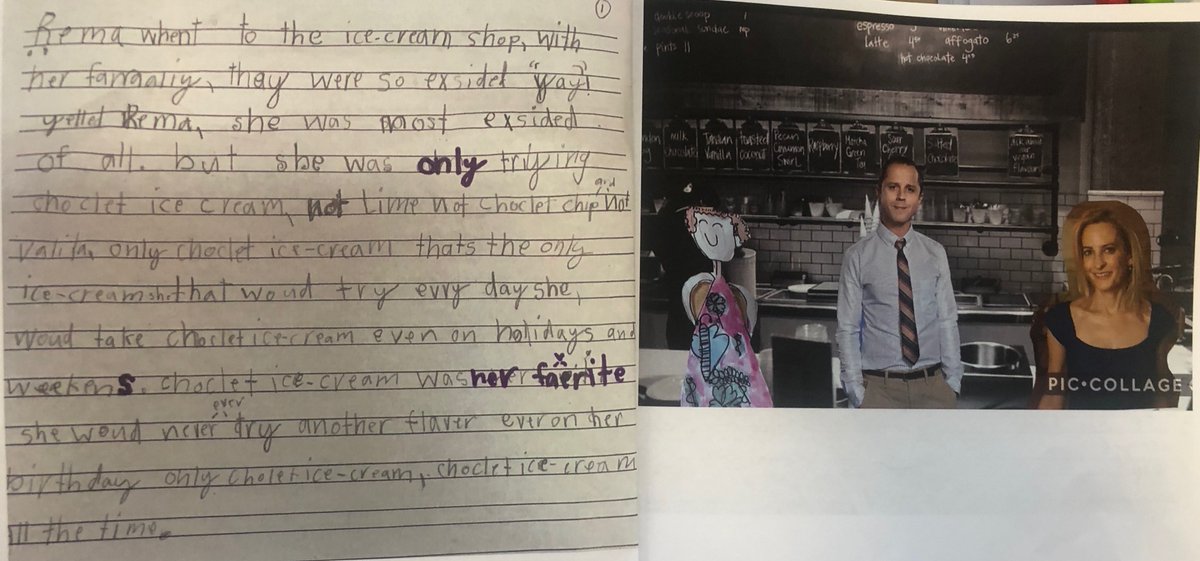 1
Rema whent to the ice-cream shop, with
her famaaliy, thay were so exsidet "yay!"
yellet Rema, she was most exsided
of all. but she was only triying
choclet ice cream, not Lime not choclet chip and not
valila, only choclet ice-cream thats the only
ice-cream she that woud try evry day she,
woud take choclet ice-cream even on holidays and
weekens. choclet ice-cream was her faerite
she woud never ever try another flaver ever on her
birthday only choletice-cream, choclet ice-cream
all the time.
cookie scoop 1
seasonal sundae mp
pints 11
espresso 3
latte 4
affogato 6
hot chocolate 4
milk chocolate
Tahitian Vanilla
toasted coconut
Pecan Cinnamon Swirl
Raspberry
Matcha Green Tea
Sour Cherry
Salted Chocolate
Ask about vegan flavour
PIC•COLLAGE